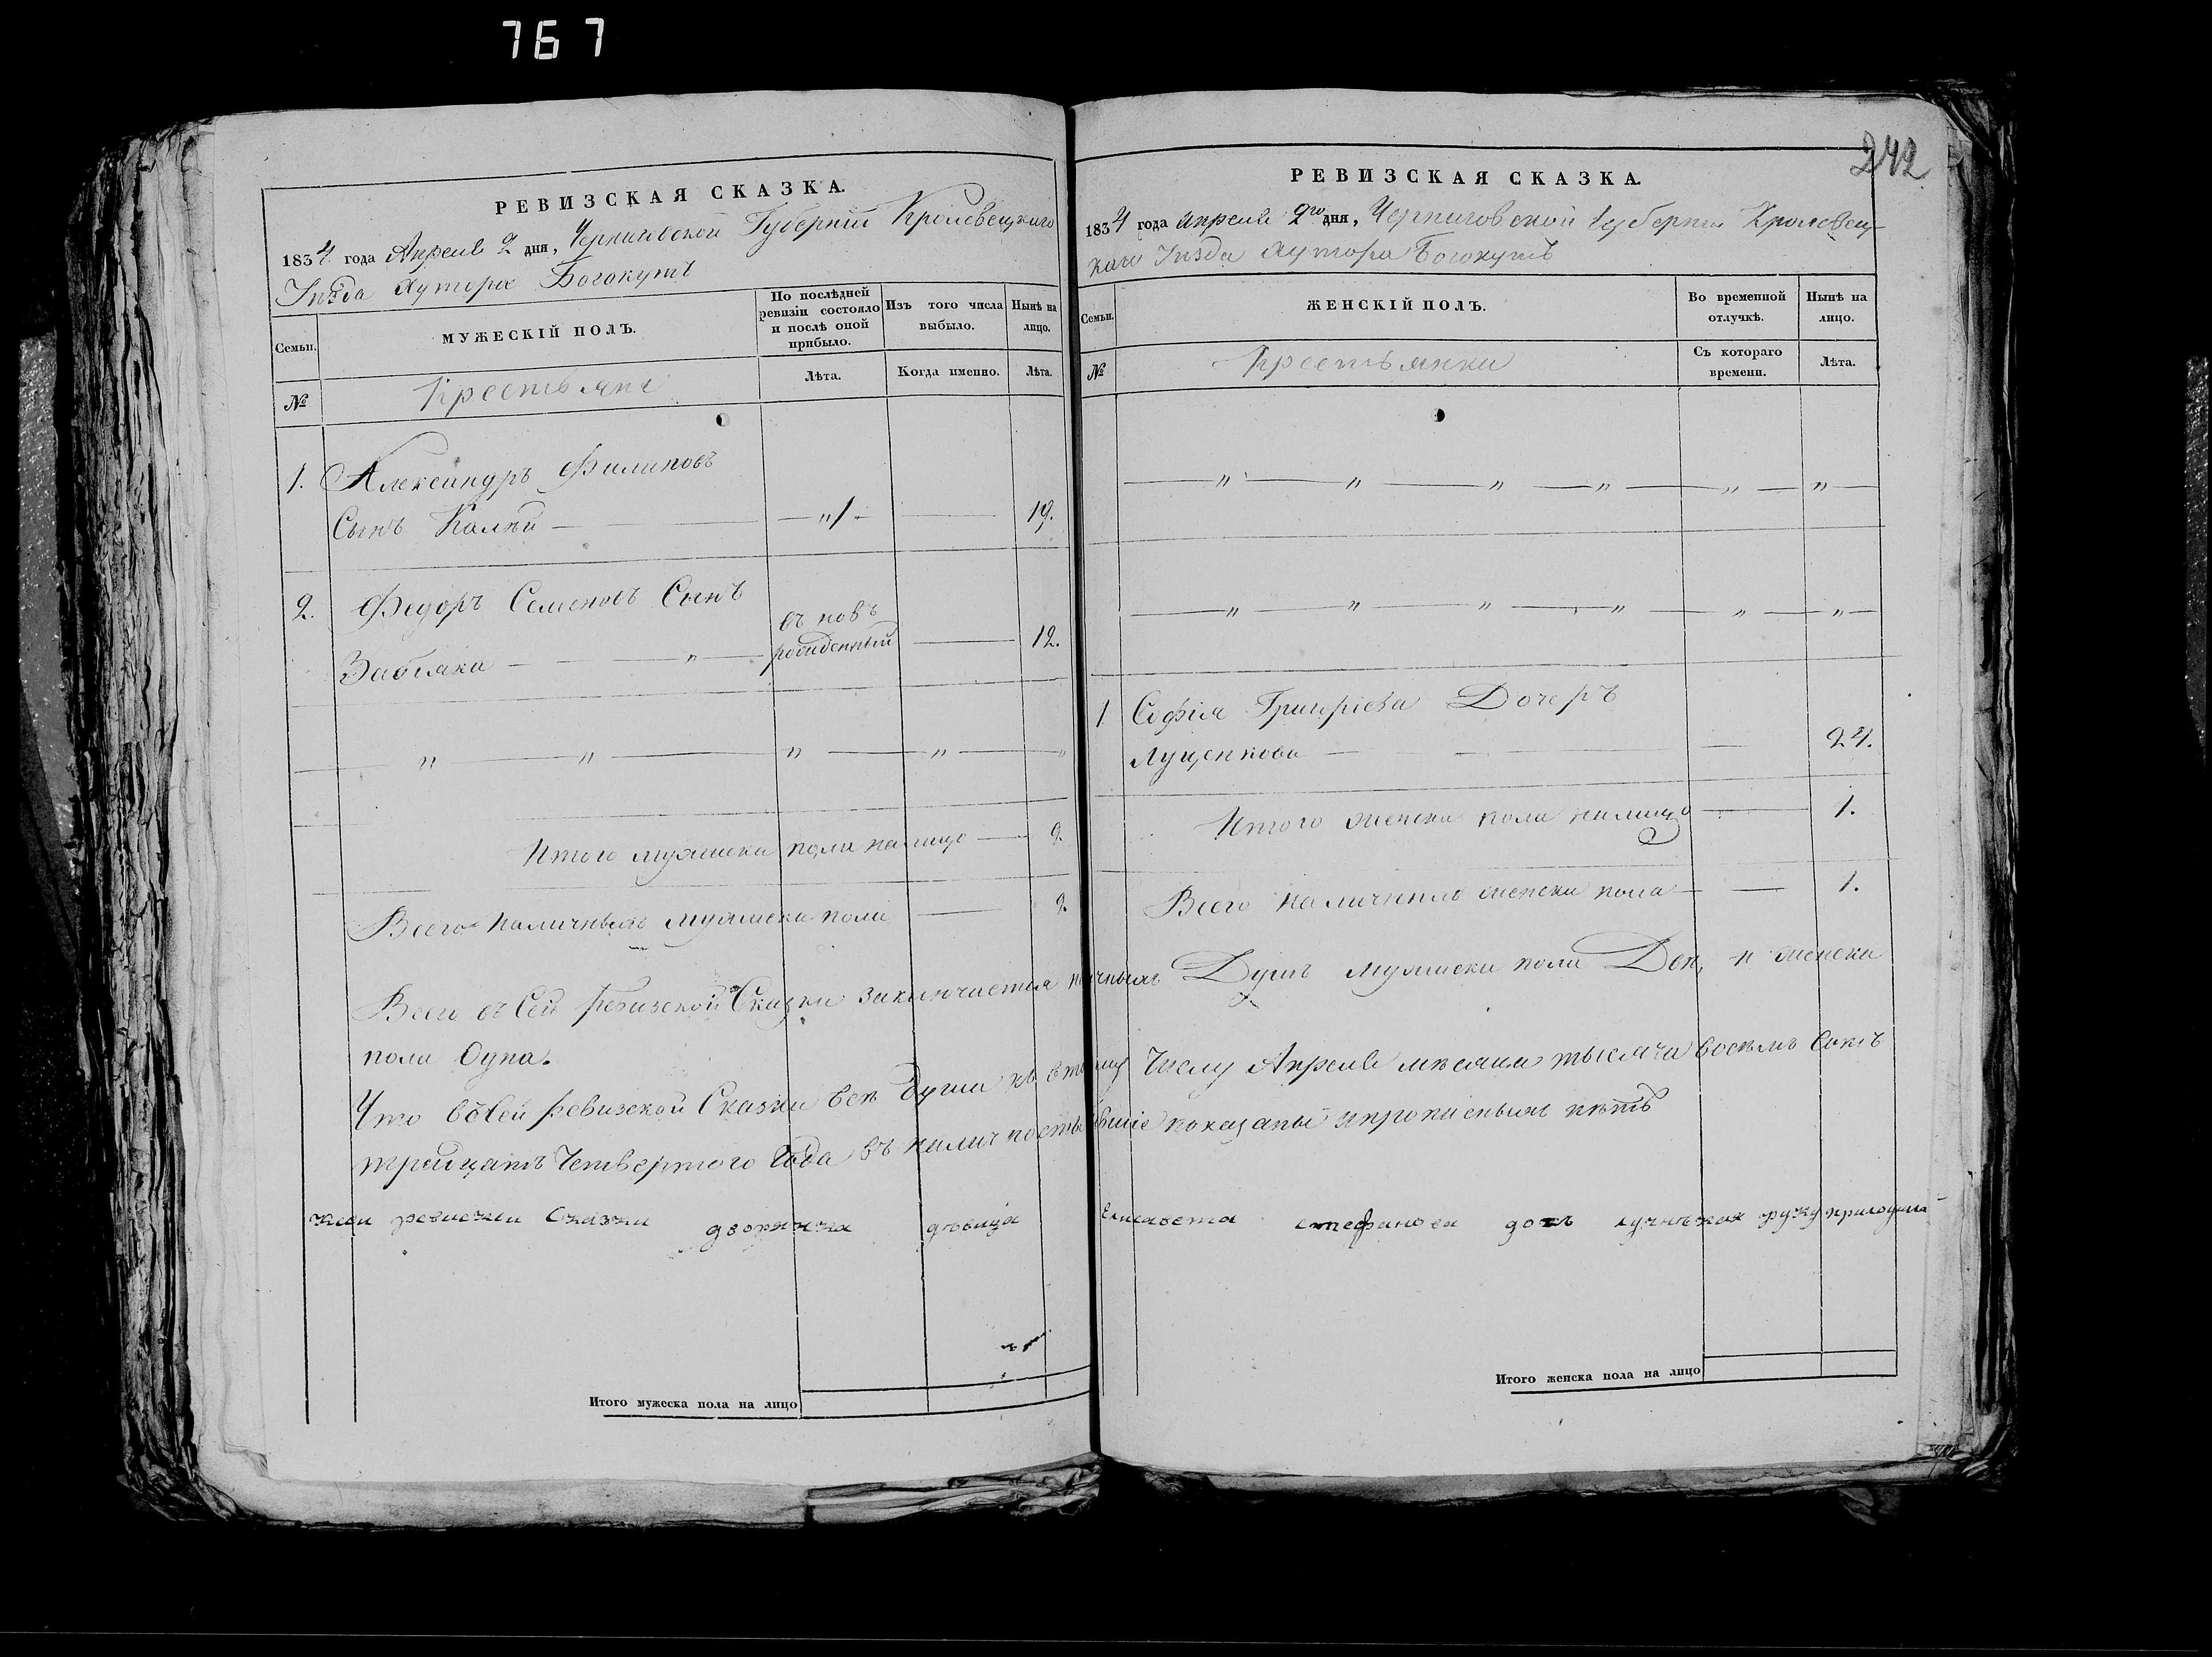 767
242
РЕВИЗСКАЯ СКАЗКА.
1834 года Апреля 2 дня, Черниговской Губернии Кролевецкаго
Уезда Хутора Богокутъ
Семьи. МУЖЕСКІЙ ПОЛЪ. По послѣдней ревизіи состояло и послѣ оной прибыло. Изъ того числа выбыло. Нынѣ на лицо.
№ Крестьяне Лѣта. Когда именно. Лѣта.
1. Александръ Филиповъ
Сынъ — "1 — 19.
2. Федоръ Семеновъ Сынъ въ новъ
Забіяка — " — 12.
" — " — " — " — "
Итого мужеска пола налицо — 2.
Всего наличныхъ мужеска пола — 2.
РЕВИЗСКАЯ СКАЗКА.
1834 года апреля 2го дня, Черниговской губернии Кролевец-
каго Уезда хутора Богокутъ
Семьи. ЖЕНСКІЙ ПОЛЪ. Во временной отлучкѣ. Нынѣ на лицо.
№ Крестьянки Съ котораго времени. Лѣта.
— " — " — " — " — " — " —
— " — " — " — " — " — " —
1 Софія Григріева Дочеръ
Лущенкова — 24.
Итого женска пола налицо — 1.
Всего наличныхъ женска пола — 1.
Всего въ Сей Ревизской Сказки заключается Душъ мужеска пола Две, и женска
пола Одна.
Что въ Сей Ревизской Сказки все души къ второму Числу Апреля месяца тысяча восемъ Сотъ
тридцатъ Четвертого Года въ наличности показаны и прописныхъ нетъ
Сказки дворянка девица Елисавета Стефанова дочь руку приложила
Итого мужеска пола на лицо
Итого женска пола на лицо